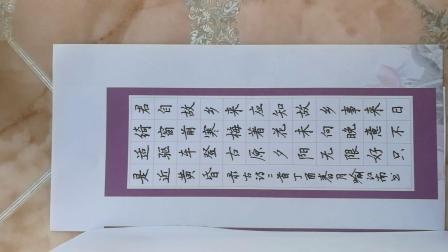 君自故乡来应知故乡事来日
绮窗前寒梅著花未向晚意不
适驱车登古原夕阳无限好只
是近黄昏 录古诗二首丁酉春月江南书